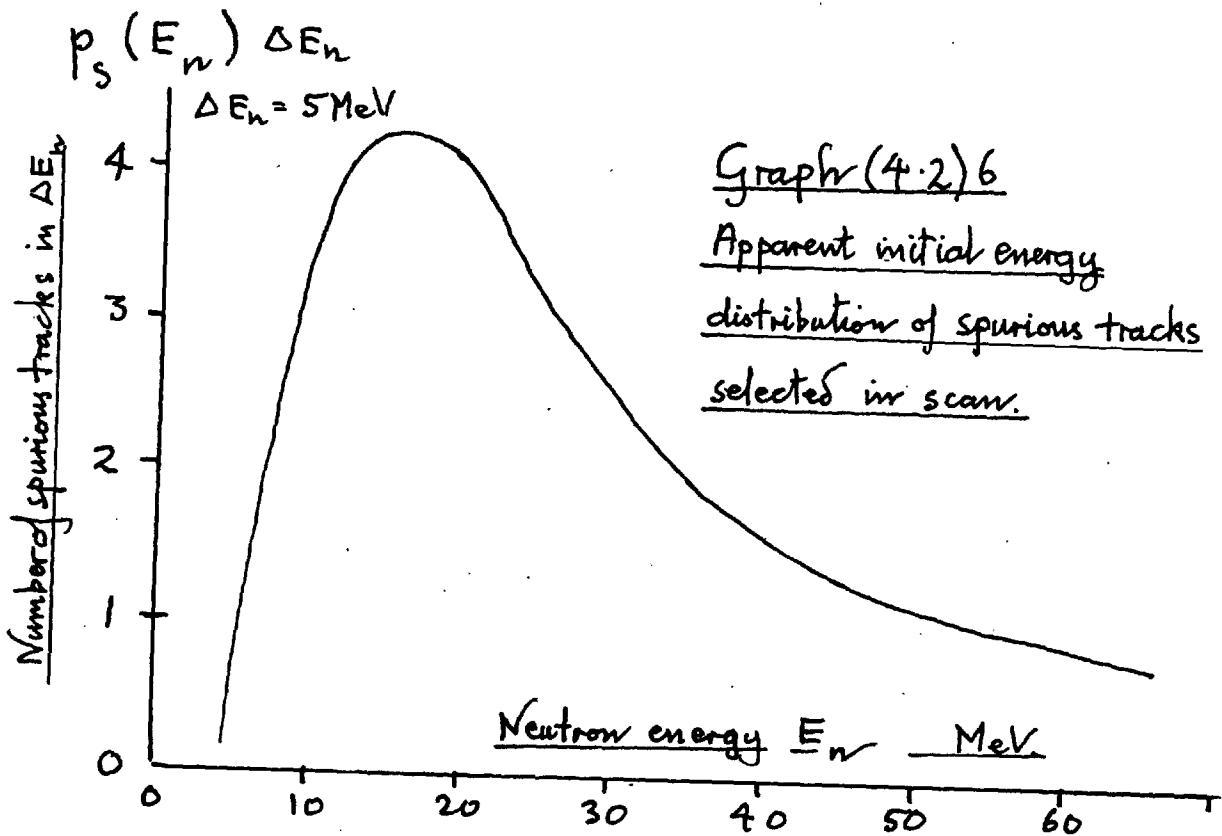 p_s (E_n) ΔE_n
ΔE_n = 5 MeV
Number of spurious tracks in ΔE_n
4
3
2
1
0
Graph (4·2) 6
Apparent initial energy
distribution of spurious tracks
selected in scan.
Neutron energy E_n MeV.
0 10 20 30 40 50 60